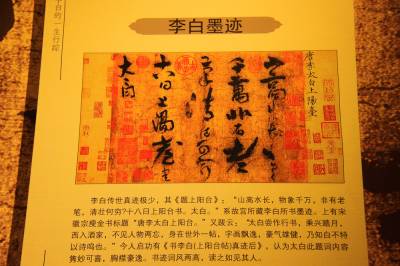 白的一生行踪
李白墨迹
唐李太白上陽臺
山高水長物象
千萬非有老筆
清壯何窮
十八日上陽臺書
太白
李白传世真迹极少，其《题上阳台》：“山高水长，物象千万，非有老
笔，清壮何穷?十八日上阳台书。太白。”系故宫所藏李白所书墨迹。上有宋
徽宗瘦金书标题“唐李太白上阳台。”又跋云：“太白尝作行书，乘兴踏月，
西入酒家，不见人物两忘，身在世外一帖，字画飘逸，豪气雄健，乃知白不特
以诗鸣也。”今人启功有《书李白(上阳台帖)真迹后》，认为太白此题词内容
隽妙可喜，胸襟豪逸。书迹词风两高，读之如见其人。